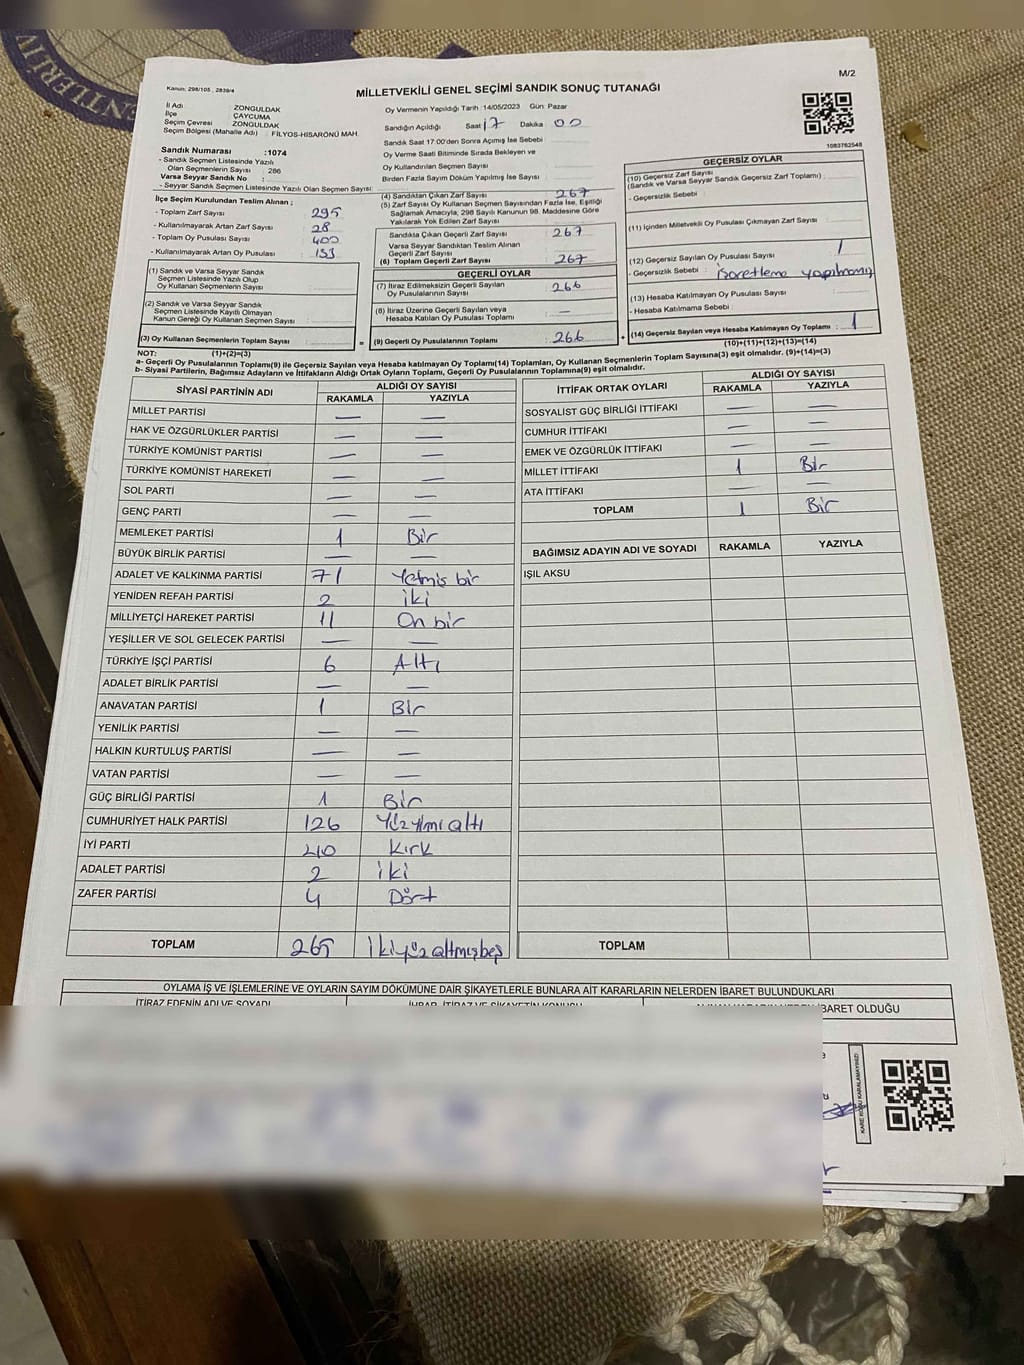 ENTLERİ V
M/2
Kanun: 298/105 , 2839/4
MİLLETVEKİLİ GENEL SEÇİMİ SANDIK SONUÇ TUTANAĞI
İl Adı : ZONGULDAK
İlçe : ÇAYCUMA
Seçim Çevresi : ZONGULDAK
Seçim Bölgesi (Mahalle Adı) : FİLYOS-HİSARÖNÜ MAH.
Sandık Numarası :1074
- Sandık Seçmen Listesinde Yazılı
Olan Seçmenlerin Sayısı : 286
Varsa Seyyar Sandık No :
- Seyyar Sandık Seçmen Listesinde Yazılı Olan Seçmen Sayısı:
İlçe Seçim Kurulundan Teslim Alınan ;
- Toplam Zarf Sayısı : 295
- Kullanılmayarak Artan Zarf Sayısı : 28
- Toplam Oy Pusulası Sayısı : 400
- Kullanılmayarak Artan Oy Pusulası : 133
(1) Sandık ve Varsa Seyyar Sandık
Seçmen Listesinde Yazılı Olup
Oy Kullanan Seçmenlerin Sayısı :
(2) Sandık ve Varsa Seyyar Sandık
Seçmen Listesinde Kayıtlı Olmayan
Kanun Gereği Oy Kullanan Seçmen Sayısı :
(3) Oy Kullanan Seçmenlerin Toplam Sayısı :
Oy Vermenin Yapıldığı Tarih :14/05/2023 Gün: Pazar
Sandığın Açıldığı Saat 17 Dakika 00
Sandık Saat 17:00'den Sonra Açımış İse Sebebi :
Oy Verme Saati Bitiminde Sırada Bekleyen ve
Oy Kullandırılan Seçmen Sayısı :
Birden Fazla Sayım Döküm Yapılmış İse Sayısı :
(4) Sandıktan Çıkan Zarf Sayısı : 267
(5) Zarf Sayısı Oy Kullanan Seçmen Sayısından Fazla İse, Eşitliği
Sağlamak Amacıyla, 298 Sayılı Kanunun 98. Maddesine Göre
Yakılarak Yok Edilen Zarf Sayısı :
Sandıkta Çıkan Geçerli Zarf Sayısı : 267
Varsa Seyyar Sandıktan Teslim Alınan
Geçerli Zarf Sayısı :
(6) Toplam Geçerli Zarf Sayısı : 267
GEÇERLİ OYLAR
(7) İtiraz Edilmeksizin Geçerli Sayılan
Oy Pusulalarının Sayısı : 266
(8) İtiraz Üzerine Geçerli Sayılan veya
Hesaba Katılan Oy Pusulası Toplamı : —
= (9) Geçerli Oy Pusulalarının Toplamı : 266
1083762548
GEÇERSİZ OYLAR
(10) Geçersiz Zarf Sayısı
(Sandık ve Varsa Seyyar Sandık Geçersiz Zarf Toplamı) :
- Geçersizlik Sebebi :
(11) İçinden Milletvekili Oy Pusulası Çıkmayan Zarf Sayısı :
(12) Geçersiz Sayılan Oy Pusulası Sayısı : 1
- Geçersizlik Sebebi : işaretleme yapılmamış
(13) Hesaba Katılmayan Oy Pusulası Sayısı :
- Hesaba Katılmama Sebebi :
+ (14) Geçersiz Sayılan veya Hesaba Katılmayan Oy Toplamı : 1
NOT: (1)+(2)=(3) (10)+(11)+(12)+(13)=(14)
a- Geçerli Oy Pusulalarının Toplamı(9) ile Geçersiz Sayılan veya Hesaba katılmayan Oy Toplamı(14) Toplamları, Oy Kullanan Seçmenlerin Toplam Sayısına(3) eşit olmalıdır. (9)+(14)=(3)
b- Siyasi Partilerin, Bağımsız Adayların ve İttifakların Aldığı Ortak Oyların Toplamı, Geçerli Oy Pusulalarının Toplamına(9) eşit olmalıdır.
SİYASİ PARTİNİN ADI ALDIĞI OY SAYISI
RAKAMLA YAZIYLA
MİLLET PARTİSİ — —
HAK VE ÖZGÜRLÜKLER PARTİSİ — —
TÜRKİYE KOMÜNİST PARTİSİ — —
TÜRKİYE KOMÜNİST HAREKETİ — —
SOL PARTİ — —
GENÇ PARTİ — —
MEMLEKET PARTİSİ 1 Bir
BÜYÜK BİRLİK PARTİSİ — —
ADALET VE KALKINMA PARTİSİ 71 Yetmiş bir
YENİDEN REFAH PARTİSİ 2 iki
MİLLİYETÇİ HAREKET PARTİSİ 11 On bir
YEŞİLLER VE SOL GELECEK PARTİSİ — —
TÜRKİYE İŞÇİ PARTİSİ 6 Altı
ADALET BİRLİK PARTİSİ — —
ANAVATAN PARTİSİ 1 Bir
YENİLİK PARTİSİ — —
HALKIN KURTULUŞ PARTİSİ — —
VATAN PARTİSİ — —
GÜÇ BİRLİĞİ PARTİSİ 1 Bir
CUMHURİYET HALK PARTİSİ 126 Yüzyirmi altı
İYİ PARTİ 40 Kırk
ADALET PARTİSİ 2 iki
ZAFER PARTİSİ 4 Dört
TOPLAM 265 İkiyüz altmışbeş
İTTİFAK ORTAK OYLARI ALDIĞI OY SAYISI
RAKAMLA YAZIYLA
SOSYALİST GÜÇ BİRLİĞİ İTTİFAKI — —
CUMHUR İTTİFAKI — —
EMEK VE ÖZGÜRLÜK İTTİFAKI — —
MİLLET İTTİFAKI 1 Bir
ATA İTTİFAKI — —
TOPLAM 1 Bir
BAĞIMSIZ ADAYIN ADI VE SOYADI RAKAMLA YAZIYLA
IŞIL AKSU
TOPLAM
OYLAMA İŞ VE İŞLEMLERİNE VE OYLARIN SAYIM DÖKÜMÜNE DAİR ŞİKAYETLERLE BUNLARA AİT KARARLARIN NELERDEN İBARET BULUNDUKLARI
İTİRAZ EDENİN ADI VE SOYADI İHBAR, İTİRAZ VE ŞİKAYETİN KONUSU İBARET OLDUĞU
KARE KODU KARALAMAYINIZ!